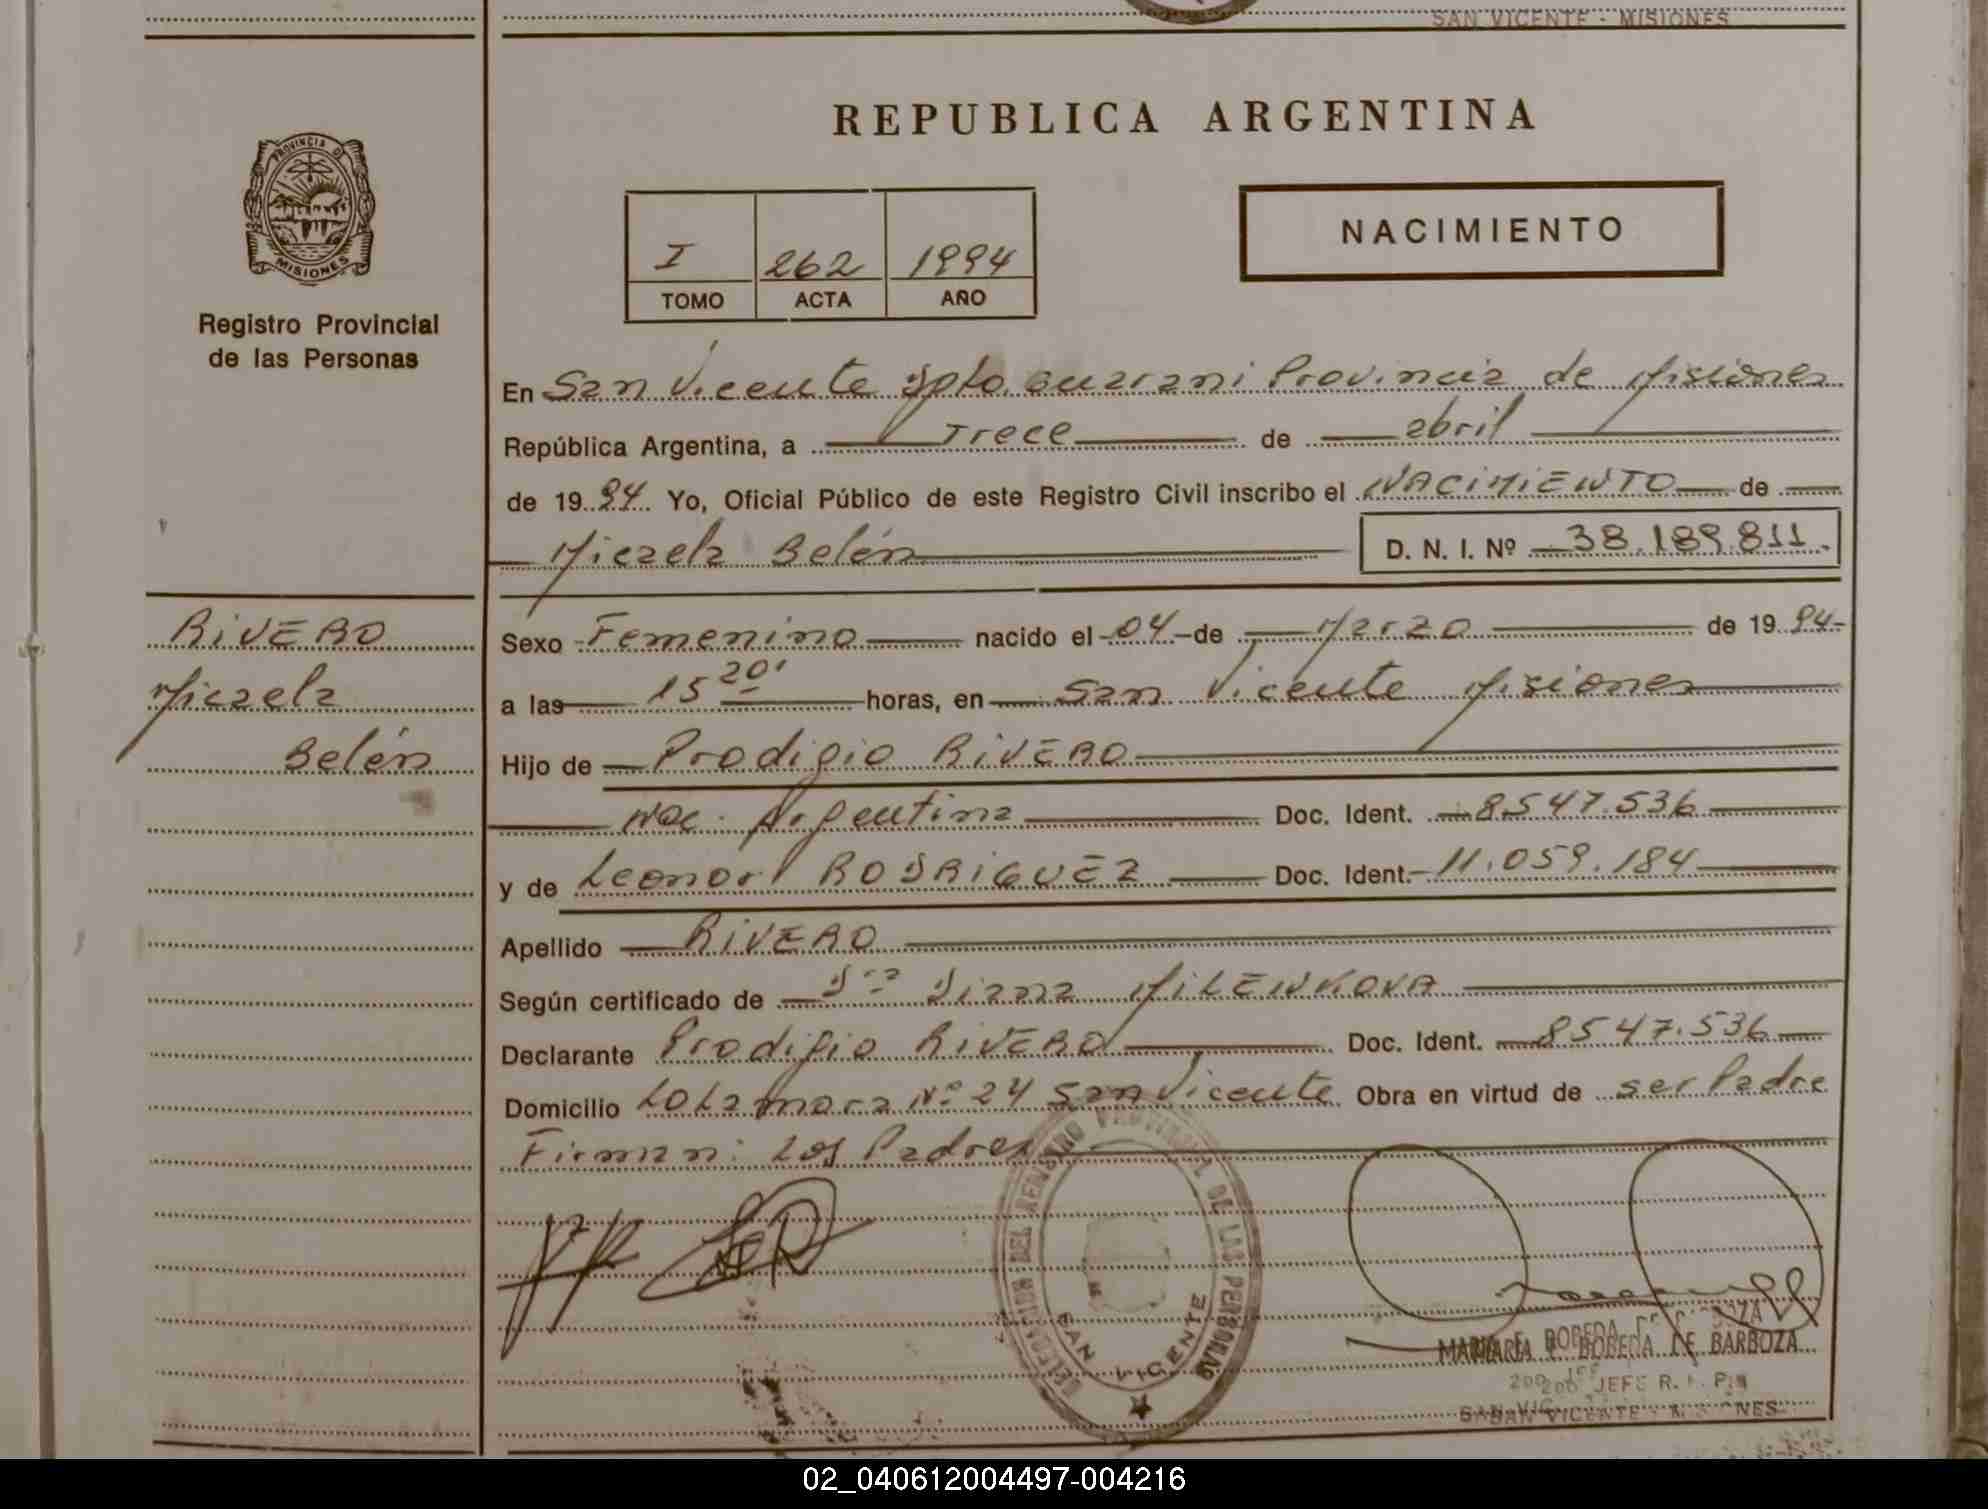 SAN VICENTE - MISIONES
REPUBLICA ARGENTINA
PROVINCIA DE
MISIONES
Registro Provincial
de las Personas
I 262 1994
TOMO ACTA AÑO
NACIMIENTO
En San Vicente Dpto. Guarani Provincia de Misiones
República Argentina, a Trece de abril
de 19 94 Yo, Oficial Público de este Registro Civil inscribo el NACIMIENTO de
Micaela Belén D. N. I. Nº 38.189.811
RIVERO
Micaela
Belén
Sexo Femenino nacido el 04 de Marzo de 19 94
a las 15 20' horas, en San Vicente Misiones
Hijo de Prodigio RIVERO
Nac. Argentina Doc. Ident. 8547.536
y de Leonor RODRIGUEZ Doc. Ident. 11.059.184
Apellido RIVERO
Según certificado de Dra Diana MILENKOVA
Declarante Prodigio RIVERO Doc. Ident. 8547.536
Domicilio Nº 24 San Vicente Obra en virtud de ser Padre
Firman: Los Padres
DEL REGISTRO PROVINCIAL DE LAS PERSONAS
SAN VICENTE
BOBEDA DE BARBOZA
JEFE R. P.
SAN VICENTE
02_040612004497-004216